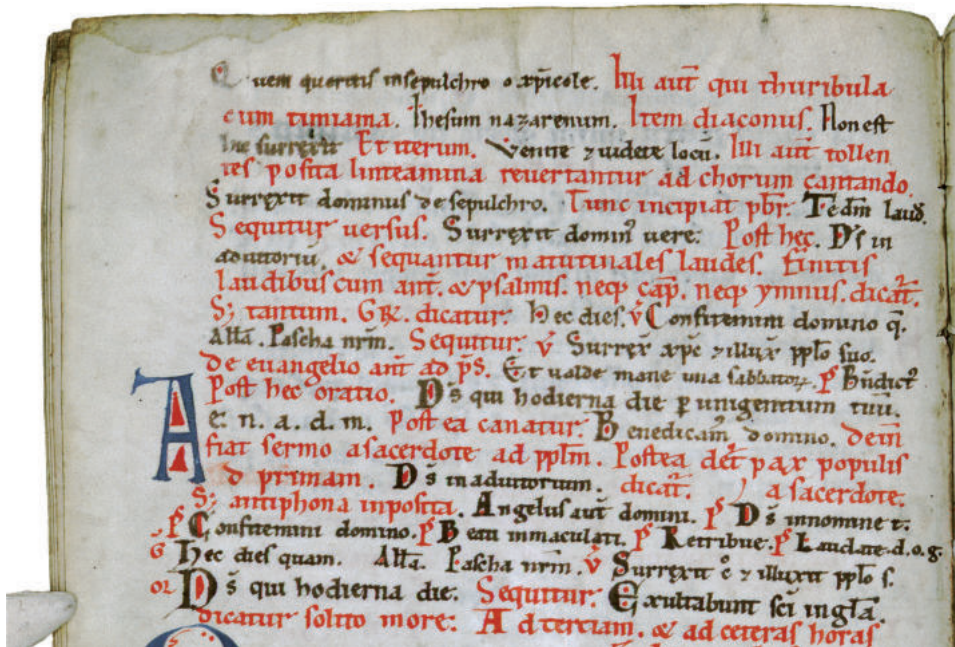 Quem queritis insepulchro o xp̄icole. Illi aut̄ qui thuribula
cum timiama. Ihesum nazarenum. Item diaconus. Non est
hic surrexit Et iterum. Venite ⁊ videte locū. Illi aut̄ tollen
tes posita linteamina revertantur ad chorum cantando.
Surrexit dominus de sepulchro. Tunc incipiat pb̄r. Te dm̄ laud̄.
Sequitur versus. Surrexit domin᷒ vere. Post hec. Ds̄ in
adiutoriū. & sequantur matutinales laudes. Finitis
laudibus cum ant̄. & psalmis. neqꝫ cap̄. neqꝫ ymnus. dicat̄.
S; tantum. GR̄. dicatur. Hec dies. v̄ Confitemini domino q̄.
All̄a. Pascha nr̄m. Sequitur. v̄ Surrex̄ xp̄c ⁊ illux̄ pplo suo.
de evangelio ant̄ ad p̄s. Et valde mane una sabbatoꝝ. p̄ Bn̄dict᷒
Post hec oratio. Ds̄ qui hodierna die ꝑ unigenitum tuū.
e. n. a. d. m. Post ea canatur. Benedicam᷒ domino. dein̄
fiat sermo asacerdote ad ppl̄m. Postea det̄ pax populis
Ad primam. Ds̄ in adiutorium. dicat̄. a sacerdote.
S; antiphona inposita. Angelus aut̄ domini. p̄ Ds̄ innomine t.
p̄ Confitemini domino. p̄ Beati inmaculati. p̄ Retribue. p̄ Laudate. d. o. g.
G Hec dies quam. All̄a. Pascha nr̄m. v̄ Surrexit c̄ ⁊ illuxit pplo s.
or̄ Ds̄ qui hodierna die. Sequitur. Exultabunt sc̄i ingl̄a.
dicatur solito more: Ad tertiam. & ad ceteras horas